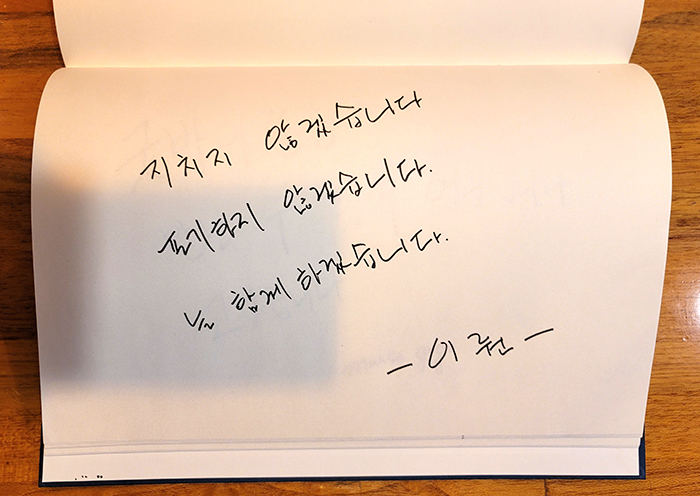 지치지 않겠습니다
포기하지 않겠습니다.
늘 함께 하겠습니다.
- 이 훤 -